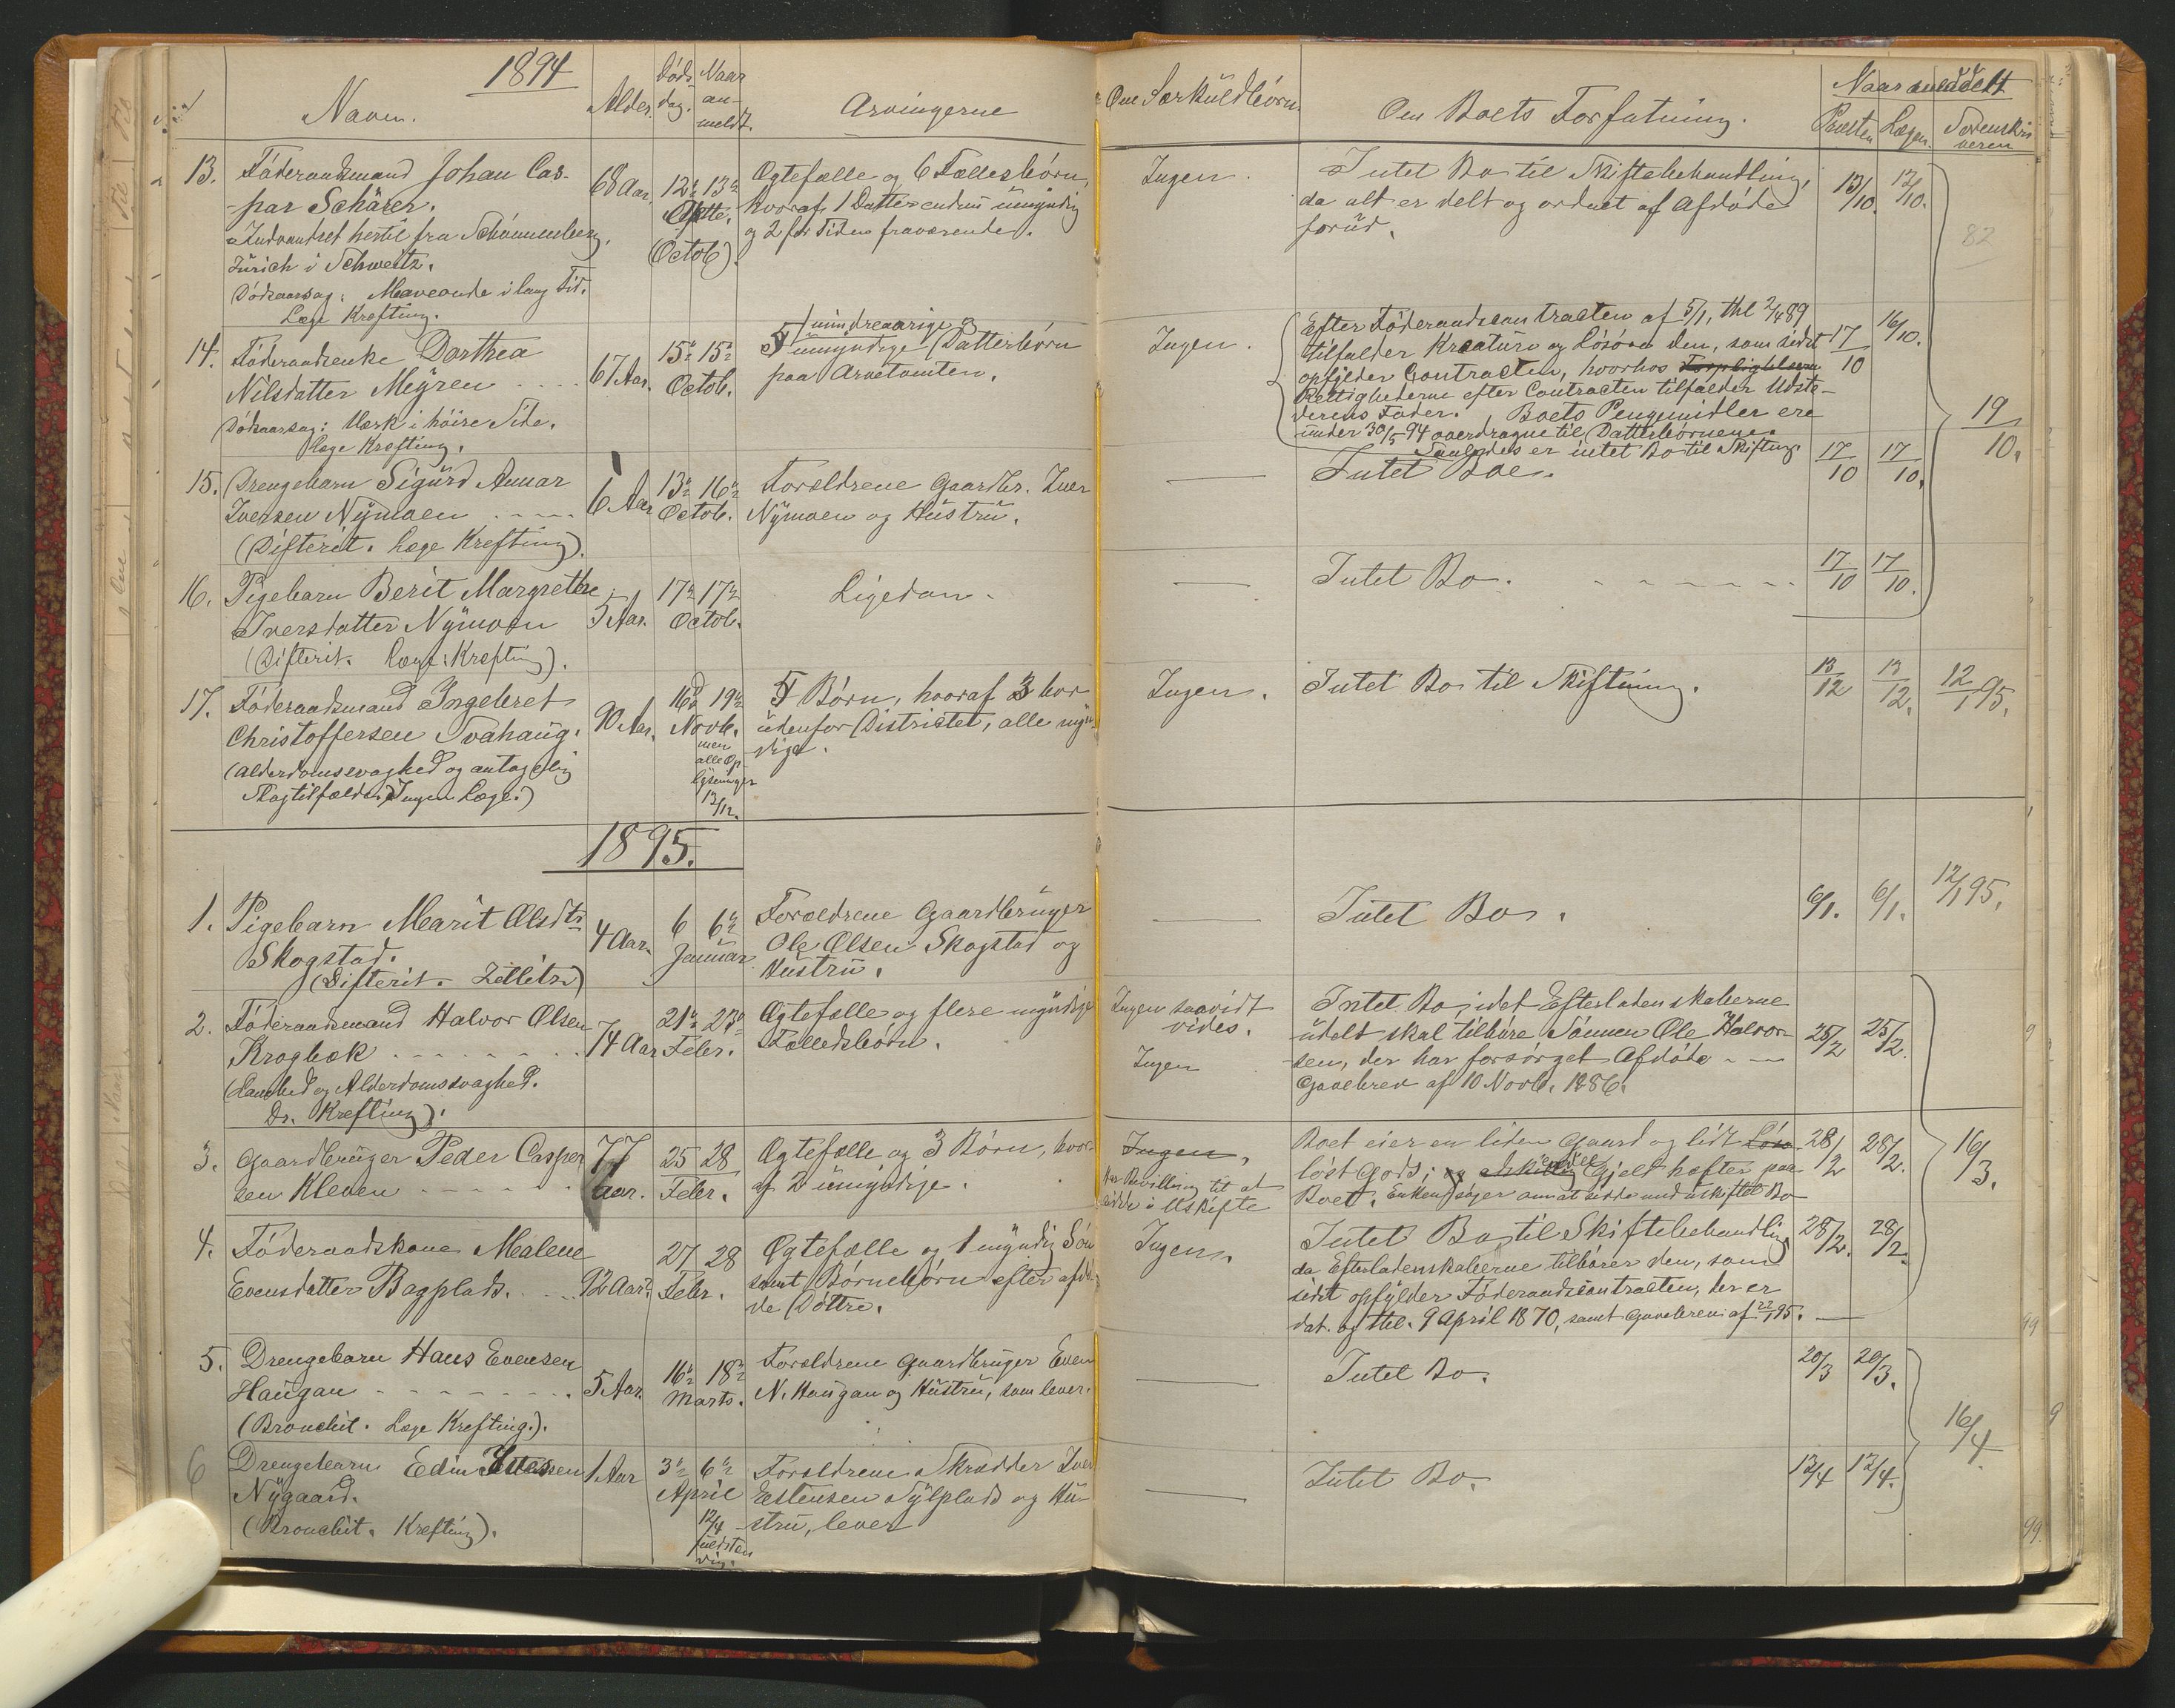 1894
Navn.
Alder.
Döds
dag.
Naar
an-
meldt.
Arvingerne
Om Særkuldbörn.
Om Boets Forfatning.
Naar anmeldt
Presten
Lægen.
Sorenskri
veren
13.
Föderaadsmand Johan Cas-
par Schärer.
Indvandret hertil fra Schönnenberg,
Zürich i Schweitz.
Dödsaarsag: Maveonde i lang Tid.
Læge Krefting.
68 Aar.
12te 13de
(Octob).
Ægtefælle og 6 Fællesbörn,
hvoraf 1 Datter endnu umyndig
og 2 for Tiden fraværende.
Ingen.
Intet Bo til Skiftebehandling,
da alt er delt og ordnet af Afdöde
forud.
13/10
13/10.
82
14.
Föderaadsenke Dorthea
Nilsdatter Meÿren
Dödsaarsag: Værk i höire Side.
Læge Krefting.
67 Aar.
15de 15de
Octob.
mindreaarige
umyndige Datterbörn
paa Arvetomten.
Ingen.
Efter Föderaadscontracten af 5/1, thl 2/4 89
tilfalder Kreaturer og Lösöre den, som sidst
opfylder Contracten, hvorhos
Rettighederne efter Contracten tilfalder Udste-
derens Fader. Boets Pengemidler ere
under 30/5 94 overdragne til Datterbörnene.
Saaledes er intet Bo til Skifting.
17/10
16/10.
19/10.
15.
Drengebarn Sigurd Annar
Iversen Nÿmoen
(Difterit. Læge Krefting).
6 Aar
13de 16de
Octob.
Forældrene Gaardbr. Iver
Nÿmoen og Hustru.
Intet Boe.
17/10
17/10.
16.
Pigebarn Berit Margrethe
Iversdatter Nÿmoen
(Difterit. Læge: Krefting).
5 Aar.
17de 17de
Octob.
Ligedan.
Intet Bo.
17/10
17/10.
17.
Föderaadsmand Ingebret
Christoffersen Svahaug.
(Alderdomssvaghed og antagelig
Slagtilfælde. Ingen Læge.)
90 Aar.
16de 19de
Novb.
men
alle Op-
lÿsninger
13/12.
5 Börn, hvoraf 3 bor
udenfor Districtet, alle myn-
dige.
Ingen.
Intet Bo til Skiftning.
13/12
13/12.
12/1 95.
1895.
1.
Pigebarn Marit Olsdtr
Skogstad.
(Difterit. Zellitz)
4 Aar.
6 6te
Januar
Forældrene Gaardbruger
Ole Olsen Skogstad og
Hustru.
Intet Bo.
6/1.
6/1.
12/1 95.
2.
Föderaadsmand Halvor Olsen
Krogbæk
(Lamhed og Alderdomssvaghed.
Dr. Krefting).
74 Aar
21de 23de
Febr.
Ægtefælle og flere myndige
Fælledsbörn.
Ingen saavidt
vides.
Ingen
Intet Bo, idet Efterladenskaberne
udelt skal tilhöre Sönnen Ole Halvor-
sen, der har forsörget Afdöde
Gavebrev af 10 Novb. 1886.
25/2
25/2.
3.
Gaardbruger Peder Casper
sen Kleven
77
Aar.
25 28
Febr.
Ægtefælle og 3 Börn, hvor-
af 2 umyndige.
Ingen,
har Bevilling til at
sidde i Uskifte
Boet eier en liden Gaard og lidt Löse
löst Gods; Gjeld hefter paa
Boet. Enken söger om at sidde med uskiftet Bo
28/2
28/2.
16/3.
4.
Föderaadskone Malene
Evensdatter Bagplads.
92 Aar.
27 28
Febr.
Ægtefælle og 1 myndig Sön
samt Börnebörn efter afdö-
de Döttre.
Ingen.
Intet Bo til Skiftebehandling
da Efterladenskaberne tilhörer den, som
sidst opfylder Föderaadscontracten, der er
dat. og thl. 9 April 1870, samt Gavebrev af 22/1 95.
28/2.
28/2.
5.
Drengebarn Hans Evensen
Haugan
(Bronchit. Læge Krefting.).
5 Aar.
16de 18de
Marts.
Forældrene Gaardbruger Even
N. Haugan og Hustru, som lever.
Intet Bo.
20/3
20/3.
16/4
6
Drengebarn Edin Iversen
Nÿgaard.
(Bronchit. Krefting).
1 Aar
3de 6te
April
12/4
fuldsten
dig.
Forældrene Skrædder Iver
Estensen Sÿlplads og Hu-
stru, lever
Intet Bo.
12/4
12/4.